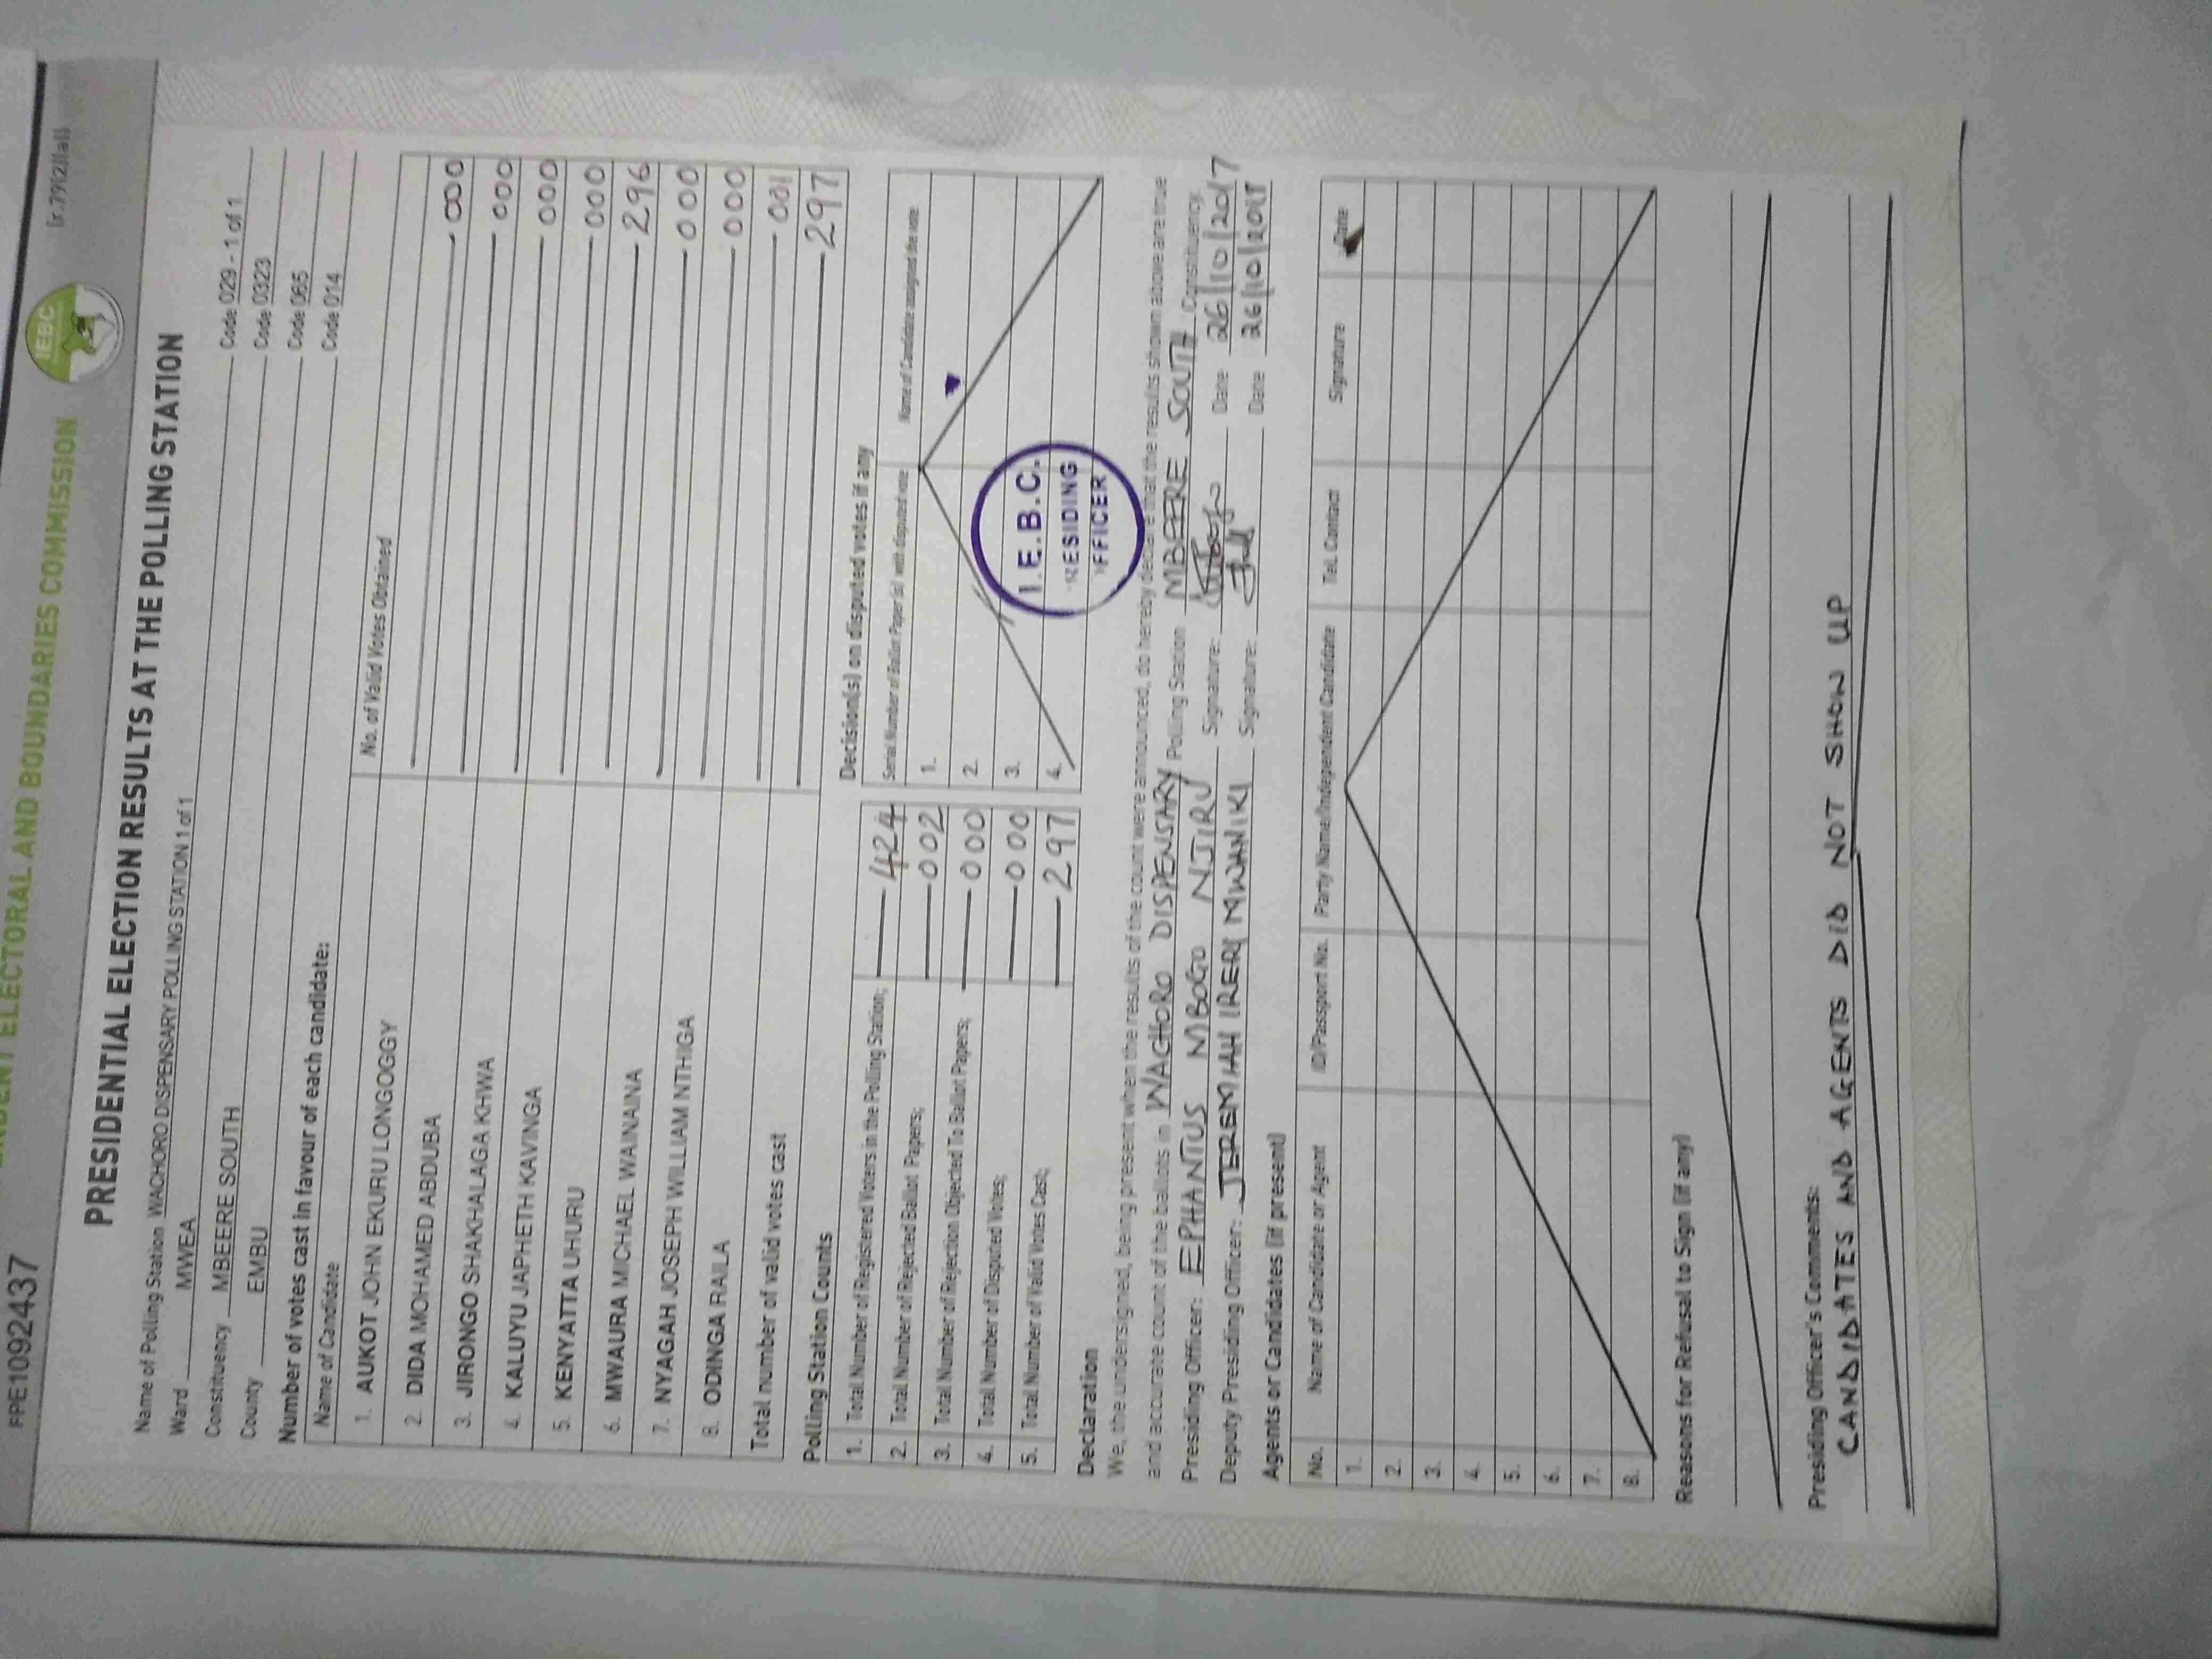 FPE1092437
ELECTORAL AND BOUNDARIES COMMISSION
IEBC
PRESIDENTIAL ELECTION RESULTS AT THE POLLING STATION
Name of Polling Station WACHORO DISPENSARY POLLING STATION 1 of 1 Code 029 - 1 of 1
Ward MWEA Code 0323
Constituency MBEERE SOUTH Code 065
County EMBU Code 014
Number of votes cast in favour of each candidate:
Name of Candidate No. of Valid Votes Obtained
1. AUKOT JOHN EKURU LONGOGGY 000
2. DIDA MOHAMED ABDUBA 000
3. JIRONGO SHAKHALAGA KHWA 000
4. KALUYU JAPHETH KAVINGA 000
5. KENYATTA UHURU 296
6. MWAURA MICHAEL WAINAINA 000
7. NYAGAH JOSEPH WILLIAM NTHIGA 000
8. ODINGA RAILA 001
Total number of valid votes cast 297
Polling Station Counts
1. Total Number of Registered Voters in the Polling Station; 424
2. Total Number of Rejected Ballot Papers; 002
3. Total Number of Rejection Objected To Ballot Papers; 000
4. Total Number of Disputed Votes; 000
5. Total Number of Valid Votes Cast; 297
Decision(s) on disputed votes if any
Serial Number of Ballot Paper(s) with disputed vote Name of Candidate assigned the vote
1.
2.
3.
4.
I.E.B.C.
RESIDING
FFICER
Declaration
We, the undersigned, being present when the results of the count were announced, do hereby declare that the results shown above are true
and accurate count of the ballots in WACHORO DISPENSARY Polling Station MBEERE SOUTH Constituency.
Presiding Officer: EPHANTUS MBOGO NJIRU Signature: Date 26/10/2017
Deputy Presiding Officer: JEREMIAH IRERI MWANIKI Signature: Date 26/10/2017
Agents or Candidates (if present)
No. Name of Candidate or Agent ID/Passport No. Party Name/Independent Candidate Tel. Contact Signature Date
1.
2.
3.
4.
5.
6.
7.
8.
Reasons for Refusal to Sign (if any)
Presiding Officer's Comments:
CANDIDATES AND AGENTS DID NOT SHOW UP